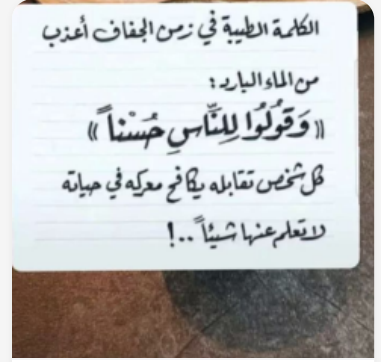 الكلمة الطيبة في زمن الجفاف أعذب
من الماء البارد :
(( وَقُولُوا لِلنَّاسِ حُسْناً ))
كل شخص تقابله يكافح معركه في حياته
لا تعلم عنها شيئاً ..!